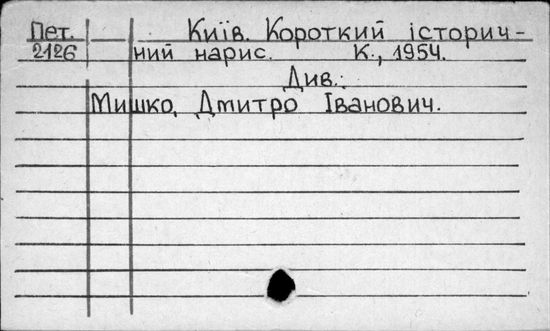 Пет. Київ. Короткий історич-
2126 ний нарис. К., 1954.
Див.:
Мишко, Дмитро Іванович.